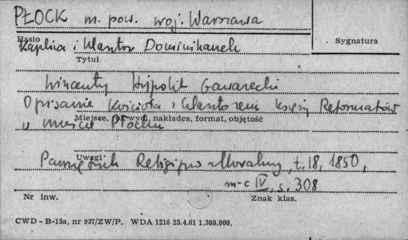 PŁOCK m. pow. woj. Warszawa
Hasło
Sygnatura
Kaplica i Klasztor Dominikanek
Tytuł
Wincenty Hipolit Gawarecki
Opisanie Kościoła i Klasztoru księży Reformatów
Miejsce, rok wyd., nakładca, format, objętość
w mieście Płocku
Uwagi
Pamiętnik Religijno Moralny, t. 18, 1850,
m-c IV, s. 308
Nr inw.
Znak klas.
CWD – B-15a, nr 937/ZW/P. WDA 1216 25.4.61 1.380.000.